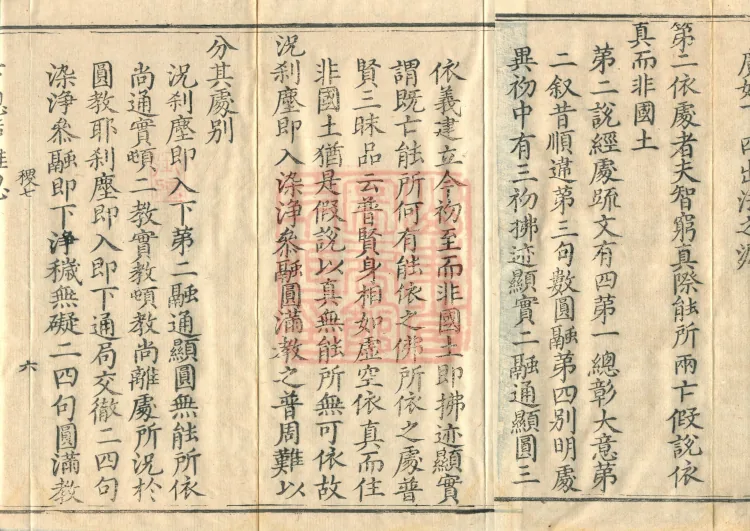 第二依處者夫智窮真際能所兩亡假說依
真而非國土
第二說經處䟽文有四第一總彰大意第
二叙昔順違第三句數圓融第四別明處
異初中有三初拂迹顯實二融通顯圓三
依義建立今初至而非國土即拂迹顯實
謂既亡能所何有能依之佛所依之處普
賢三昧品云普賢身相如虛空依真而住
非國土猶是假說以真無能所無可依故
況刹塵即入染淨叅融圓滿教之普周難以
分其處別
況刹塵即入下第二融通顯圓無能所依
尚通實頓二教實教頓教尚離處所況於
圓教耶刹塵即入即下通局交徹二四句
染淨叅融即下淨穢無礙二四句圓滿教
稷七
六